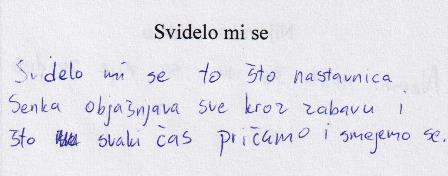 Svidelo mi se
Svidelo mi se to što nastavnica
Senka objašnjava sve kroz zabavu i
što svaki čas pričamo i smejemo se.